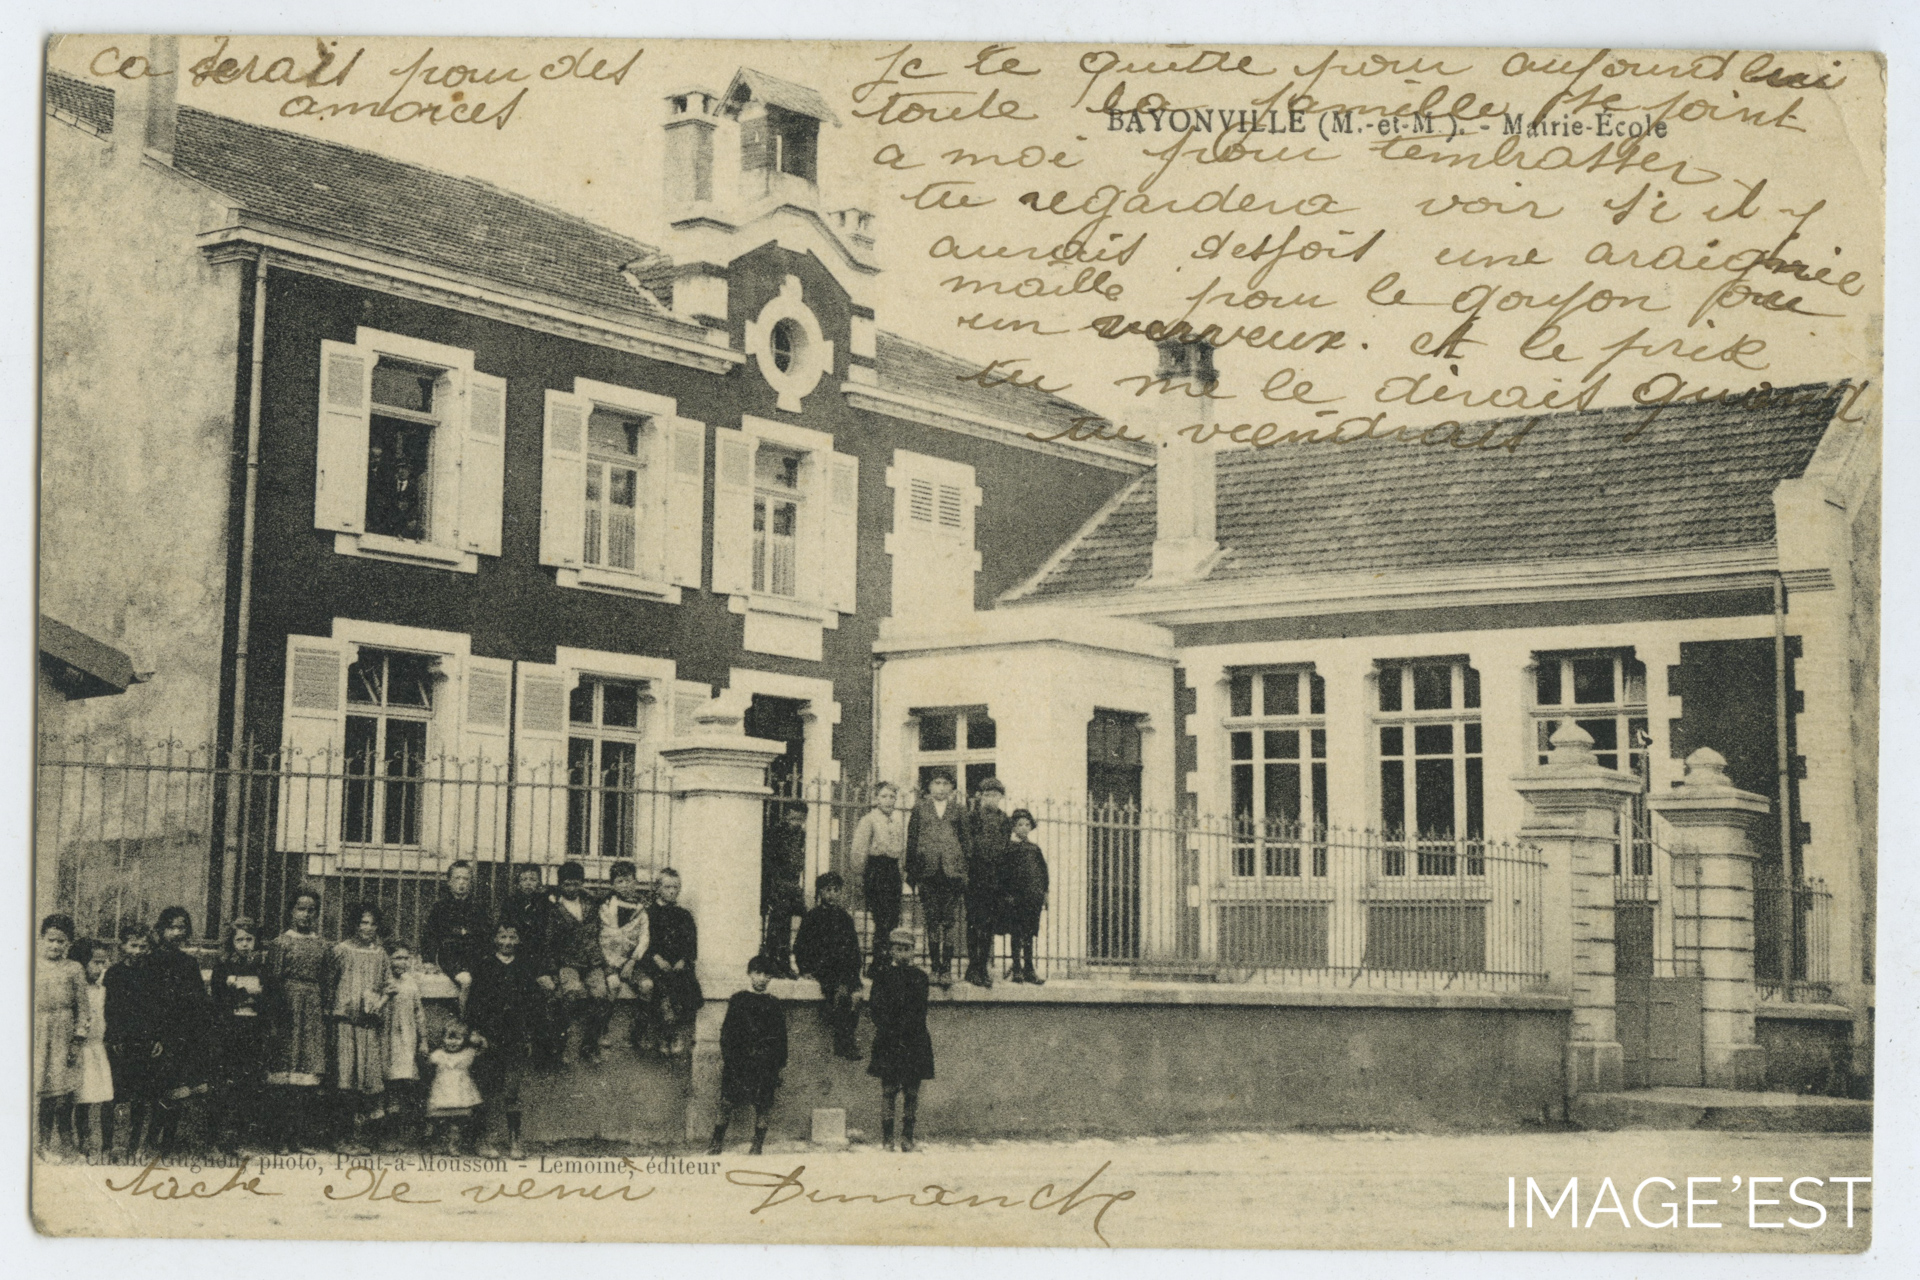 ca serais pour des
amorces
je te quitte pour aujourd'hui
toute la famille se joint
a moi pour t'embrasser
tu regardera voir si il y
aurais desfois une araignée
maille pour le goujon ou
un verveux. et le prix
tu me le dirais quand
tu viendrais
BAYONVILLE (M.-et-M.). - Mairie-École
Cliché Gugnon, photo, Pont-à-Mousson - Lemoine, éditeur
tache de venir Dimanche
IMAGE'EST